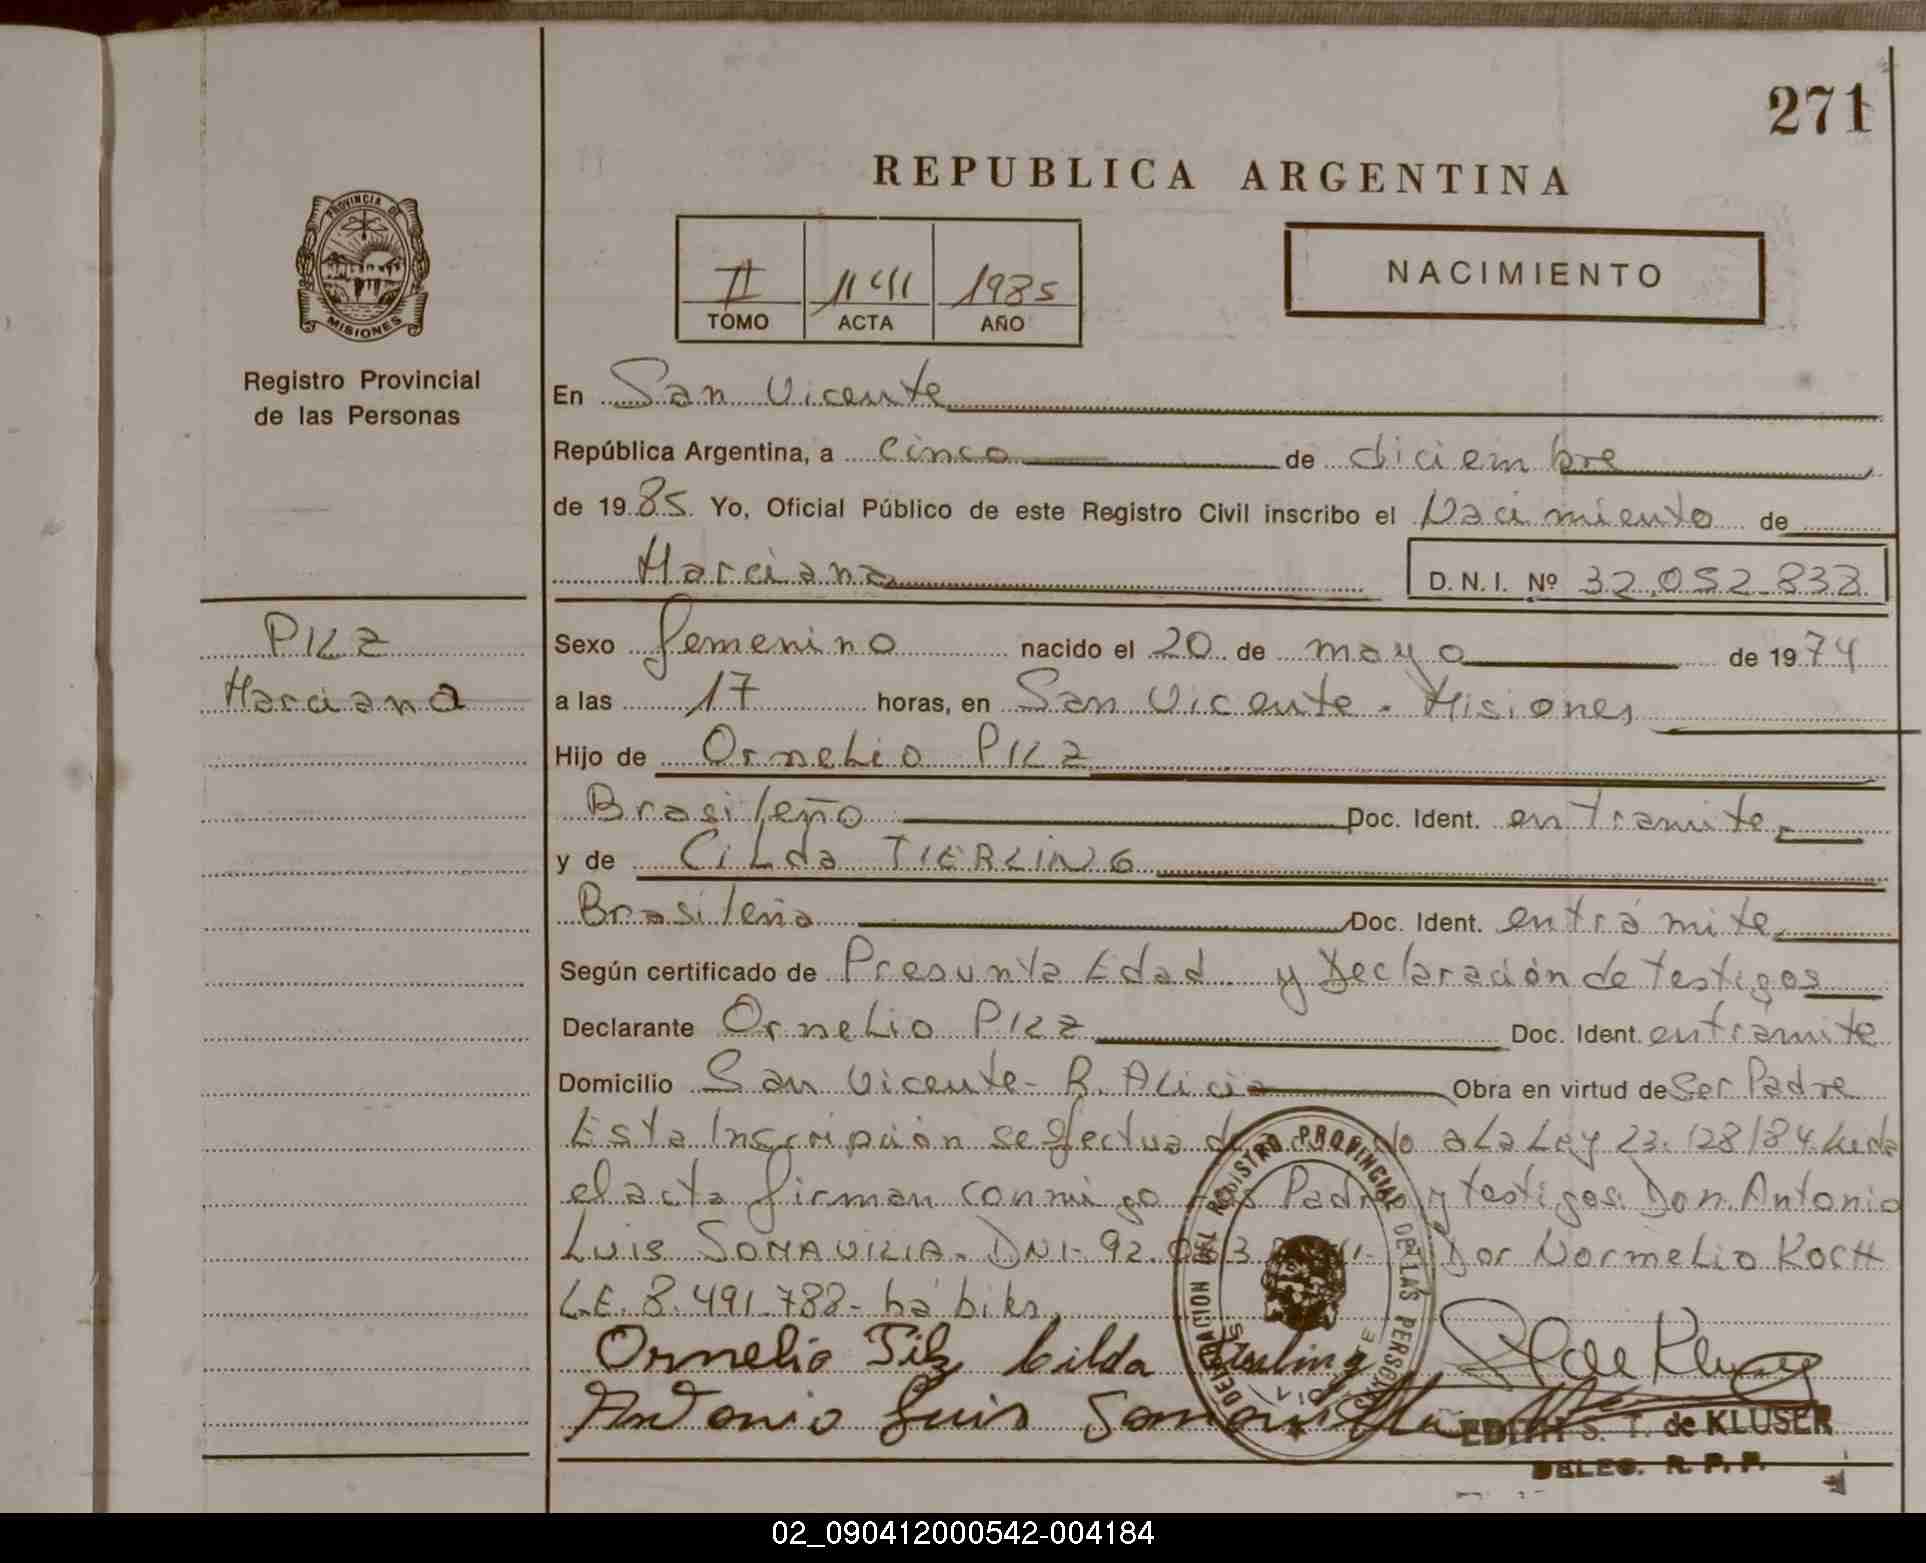 271
REPUBLICA ARGENTINA
PROVINCIA DE
MISIONES
Registro Provincial
de las Personas
II 1985
TOMO ACTA AÑO
NACIMIENTO
En San Vicente
República Argentina, a cinco de diciembre
de 1985 Yo, Oficial Público de este Registro Civil inscribo el Nacimiento de
Marciana D.N.I. Nº 32.052.838
PILZ
Marciana
Sexo femenino nacido el 20 de mayo de 1974
a las 17 horas, en San Vicente - Misiones
Hijo de Ornelio PILZ
Brasileño Doc. Ident. en tramite
y de CiLda TIERLING
Brasileña Doc. Ident. en trámite
Según certificado de Presunta Edad y Declaración de testigos
Declarante Ornelio PILZ Doc. Ident. en trámite
Domicilio San Vicente - B. Alicia Obra en virtud de Ser Padre
Esta Inscripción se efectua a La Ley 23.128/84. Leida
el acta firman conmigo y testigos. Don Antonio
Luis SOMAVILIA - DNI - 92. Don Normelio KOCH
L.E. 8.491.788 - hábiles
Ornelio Pilz Cilda Tierling
Antonio Luis Somavilla
DELEGACION DEL REGISTRO PROVINCIAL DE LAS PERSONAS
EDITH S. T. de KLUSER
DELEG. R. P. P.
02_090412000542-004184